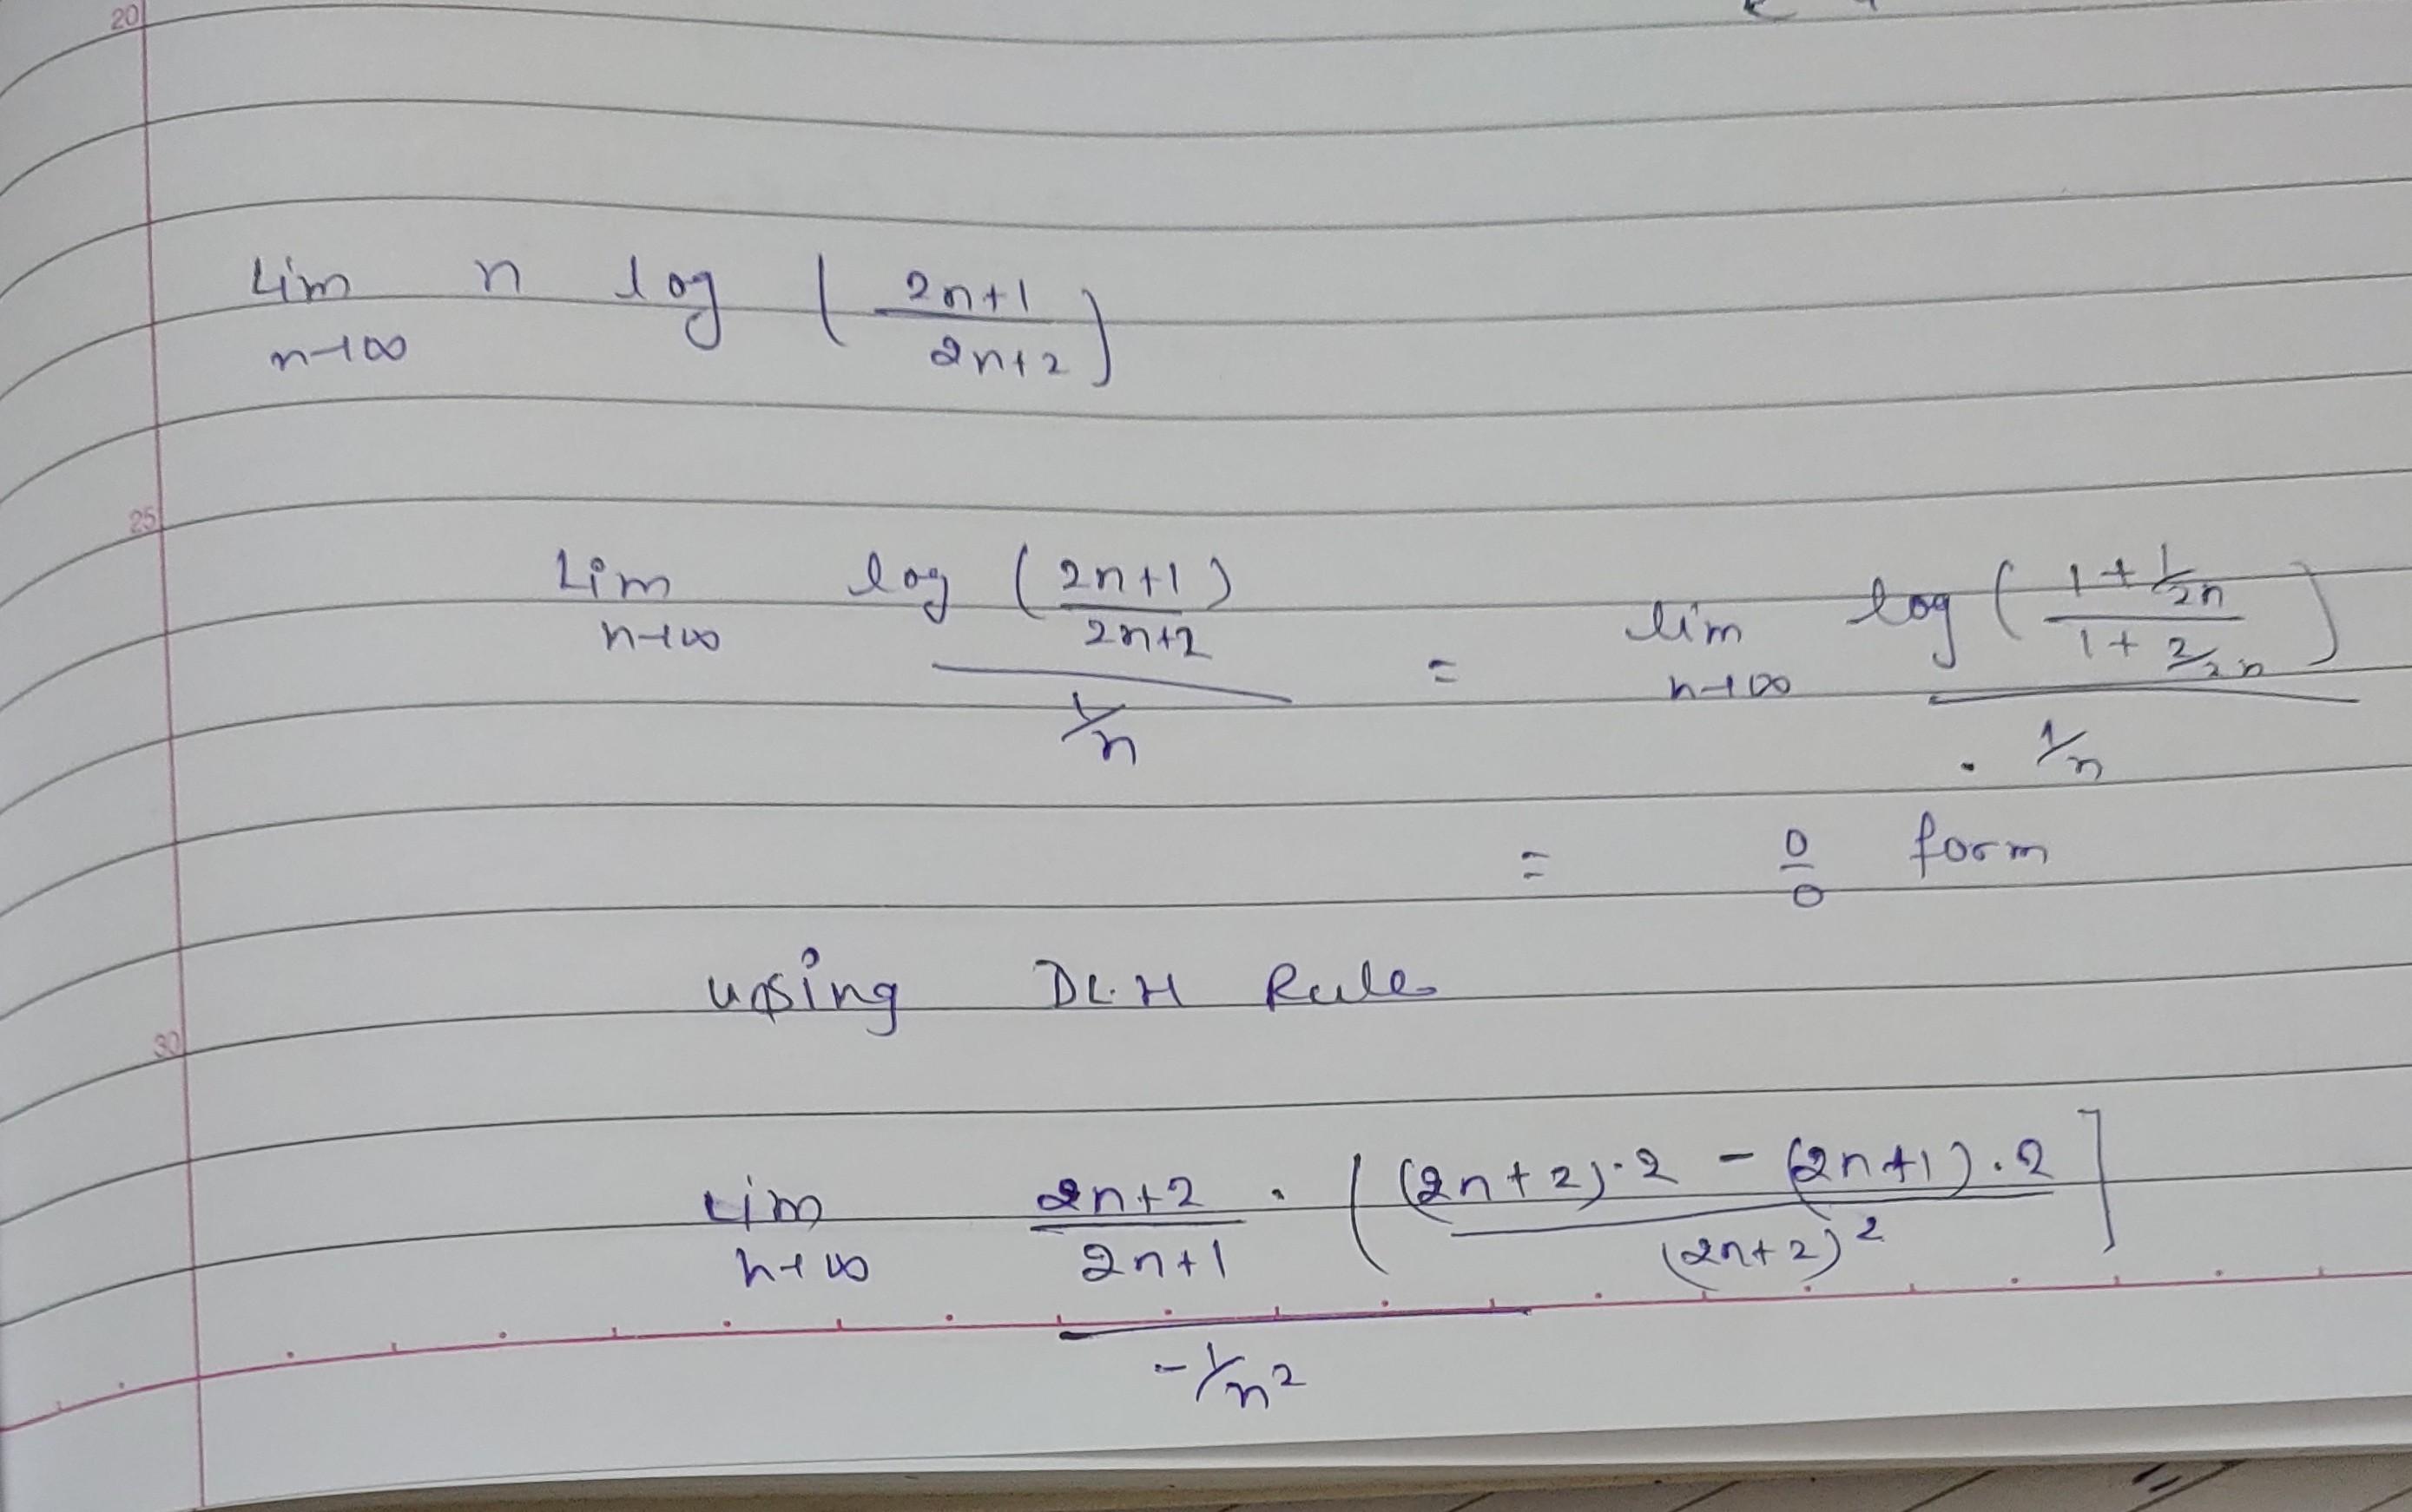 20
Lim n→∞ n log (2n+1 / 2n+2)
25
Lim n→∞ log (2n+1 / 2n+2) / 1/n = lim n→∞ log (1 + 1/2n / 1 + 2/2n) / 1/n
= 0/0 form
using DL.H Rule
30
Lim n→∞ 2n+2 / 2n+1 · [(2n+2)·2 - (2n+1)·2 / (2n+2)²] / -1/n²